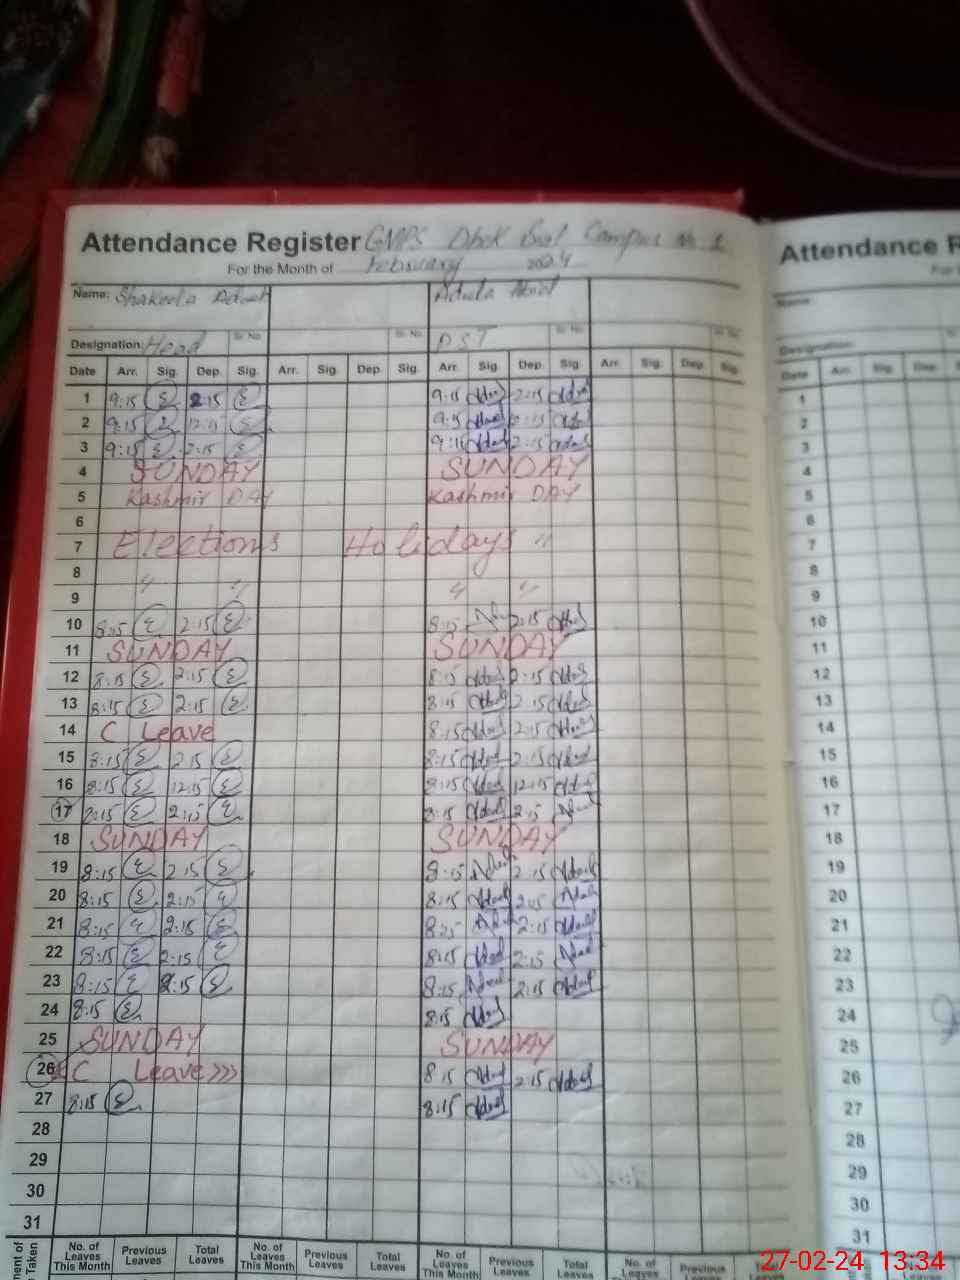 Attendance Register GMPS Dhok Bal Campus No 1 Attendance R
For the Month of February 2024
Name: Shakeela Name:
Sr. No. Sr. No. Sr. No. Sr. No.
Designation: Head PST Designation:
Date Arr. Sig. Dep. Sig. Arr. Sig. Dep. Sig. Arr. Sig. Dep. Sig. Arr. Sig. Dep. Sig. Date Arr. Sig. Dep.
1 9:15 2:15 9:15 2:15 1
2 9:15 12:15 9:15 2
3 9:15 2:15 9:15 2:15 3
4 SUNDAY SUNDAY 4
5 Kashmir DAY Kashmir DAY 5
6 6
7 Elections Holidays " 7
8 8
9 " " " " 9
10 8:15 2:15 8:15 2:15 10
11 SUNDAY SUNDAY 11
12 8:15 2:15 8:15 2:15 12
13 8:15 2:15 8:15 2:15 13
14 C Leave 8:15 2:15 14
15 8:15 2:15 8:15 2:15 15
16 8:15 12:15 8:15 12:15 16
17 8:15 2:15 8:15 2:15 17
18 SUNDAY SUNDAY 18
19 8:15 2:15 8:15 2:15 19
20 8:15 2:15 8:15 2:15 20
21 8:15 2:15 8:15 2:15 21
22 8:15 2:15 8:15 2:15 22
23 8:15 2:15 8:15 2:15 23
24 8:15 8:15 24
25 SUNDAY SUNDAY 25
26 C Leave >>> 8:15 2:15 26
27 8:15 8:15 27
28 28
29 29
30 30
31 31
No. of Leaves This Month Previous Leaves Total Leaves No. of Leaves This Month Previous Leaves Total Leaves No. of Leaves This Month Previous Leaves Total Leaves No. of Leaves This Month Previous Leaves Total
27-02-24 13:34